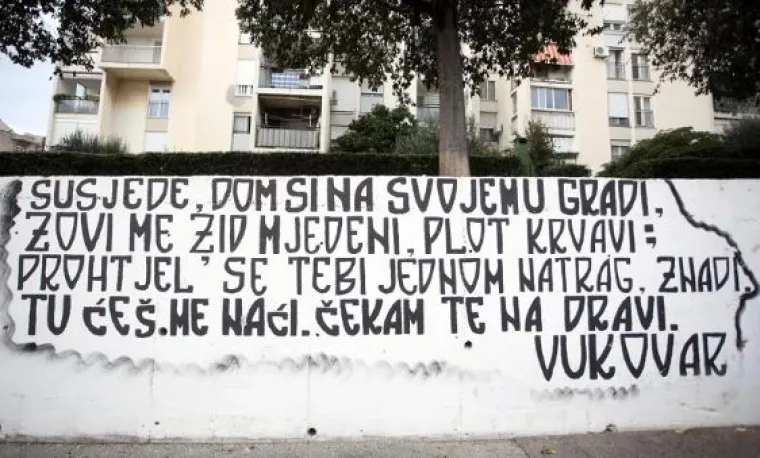 SUSJEDE, DOM SI NA SVOJEMU GRADI,
ZOVI ME ZID MJEDENI, PLOT KRVAVI;
PROHTJEL' SE TEBI JEDNOM NATRAG, ZNADI,
TU ĆEŠ ME NAĆI. ČEKAM TE NA DRAVI.
VUKOVAR